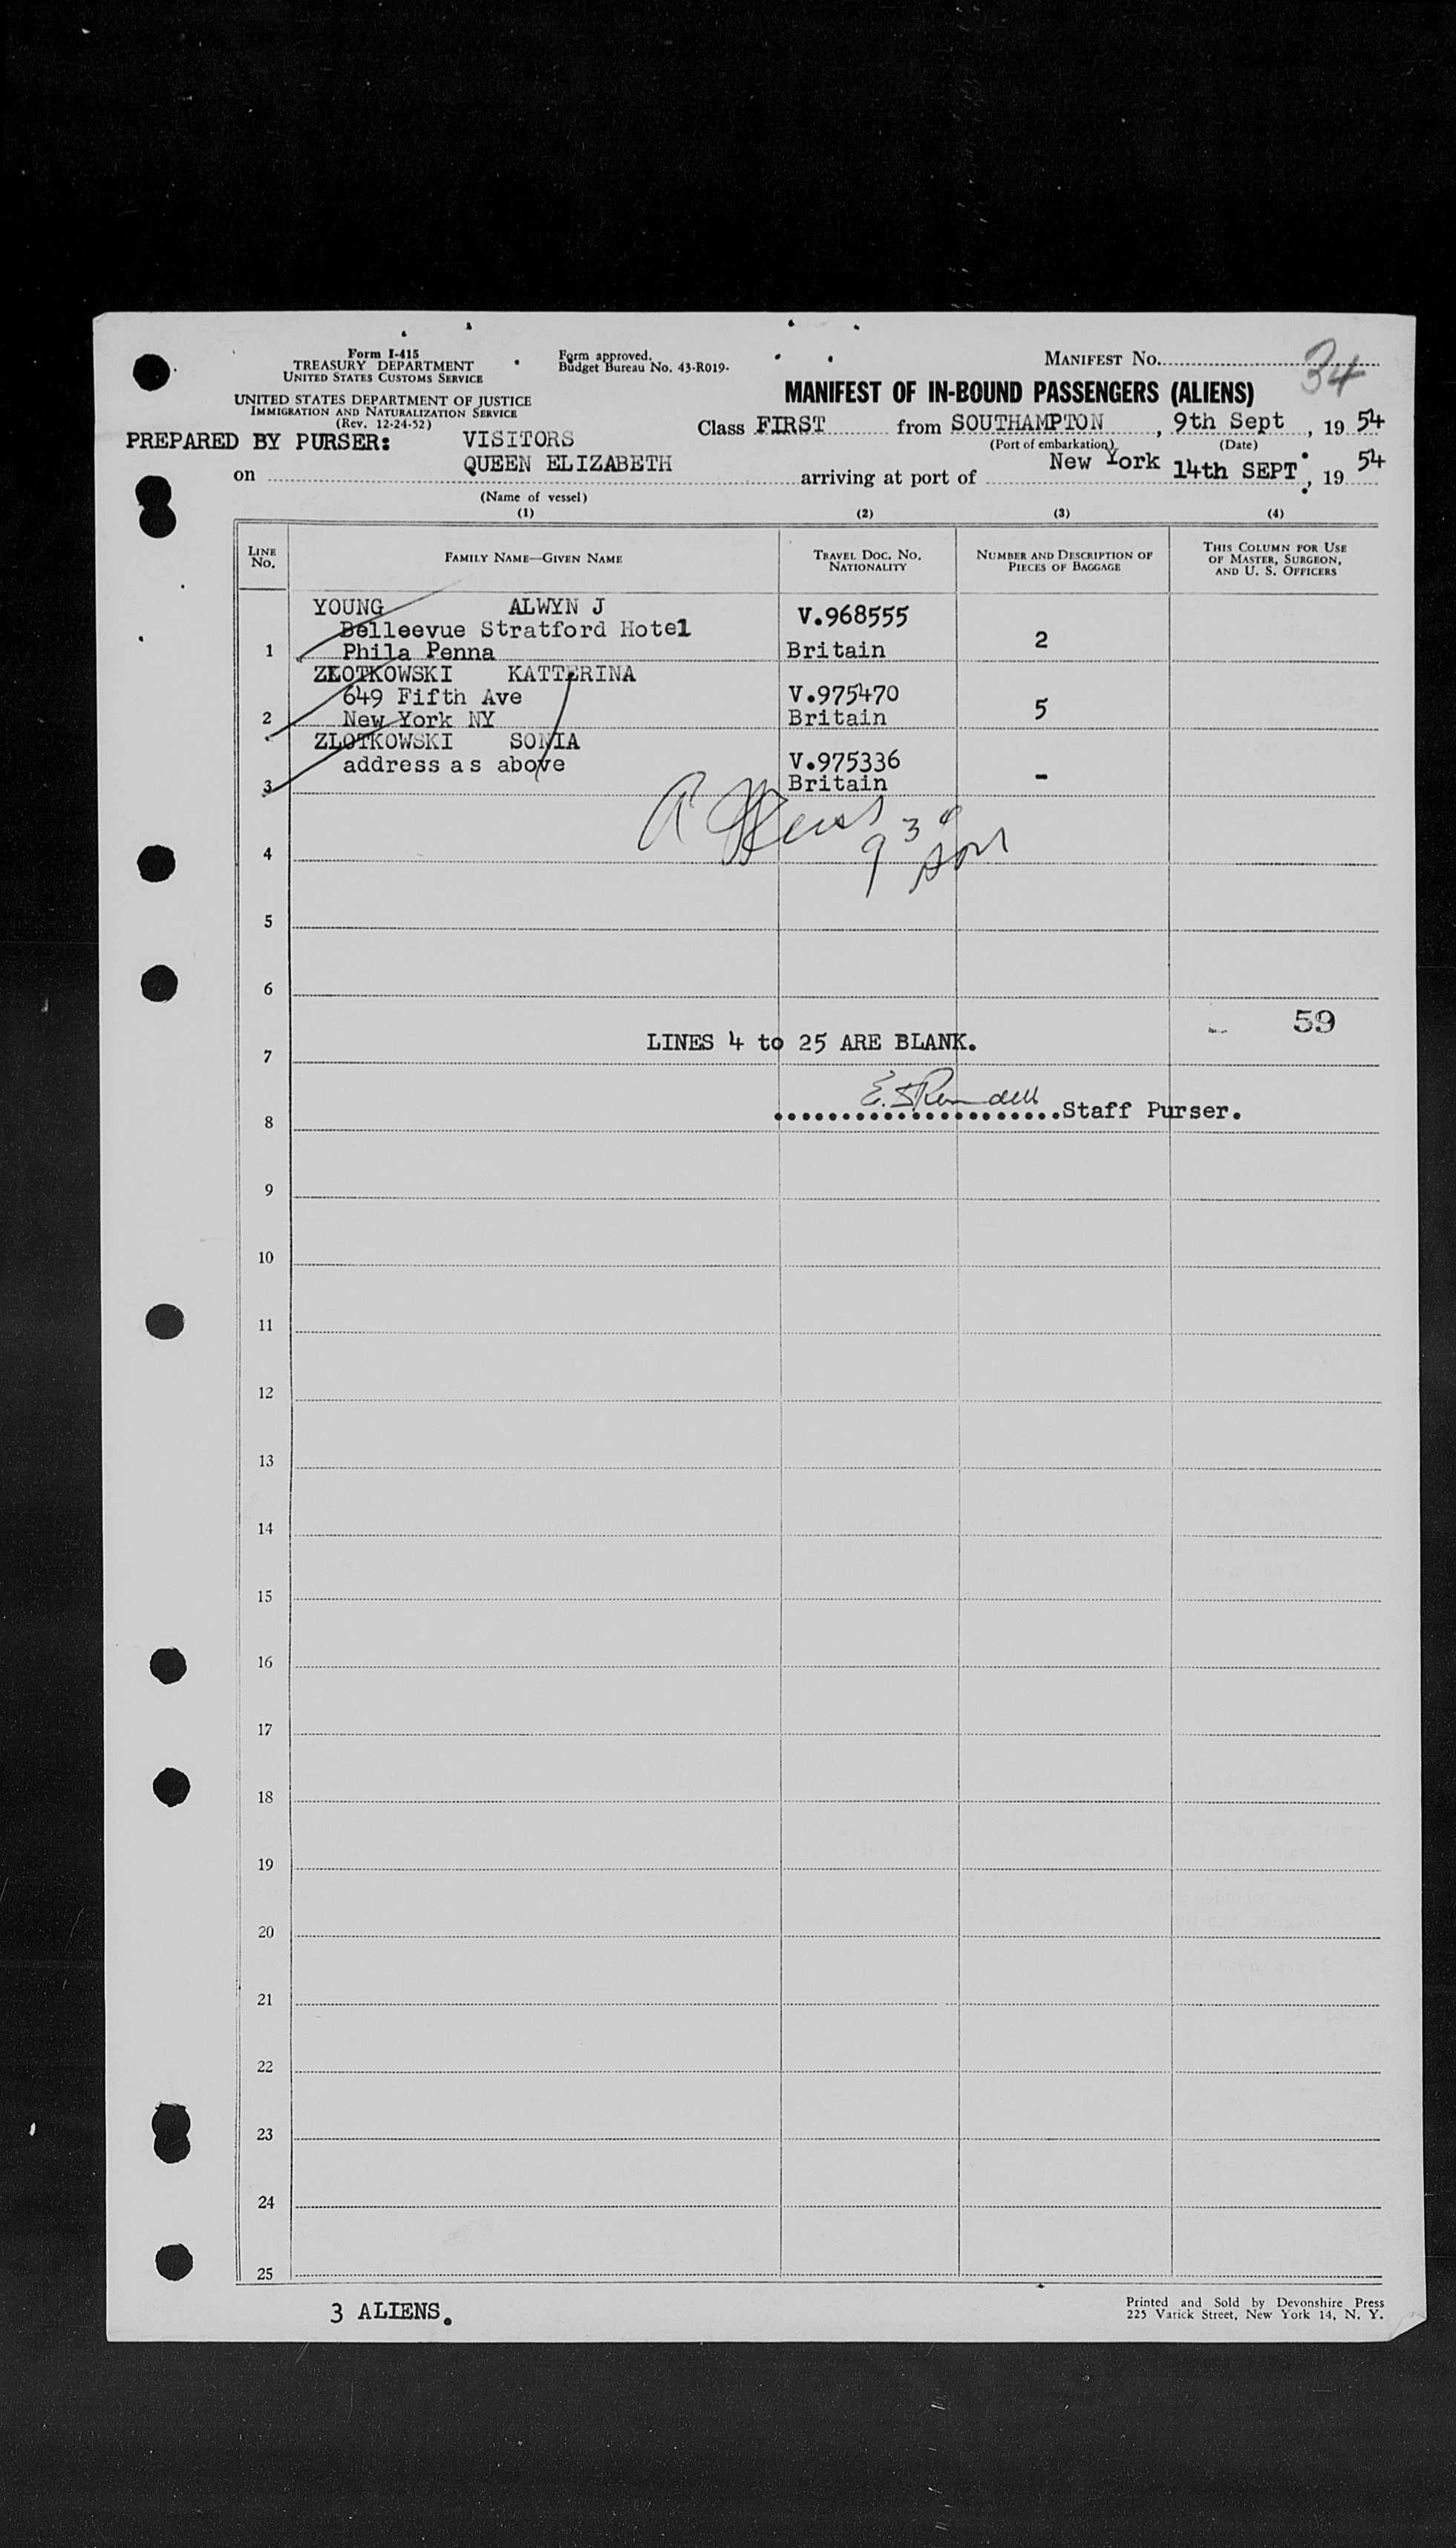 Form I-415
TREASURY DEPARTMENT
UNITED STATES CUSTOMS SERVICE
UNITED STATES DEPARTMENT OF JUSTICE
IMMIGRATION AND NATURALIZATION SERVICE
(Rev. 12-24-52)
Form approved.
Budget Bureau No. 43-R019-
MANIFEST No. 34
MANIFEST OF IN-BOUND PASSENGERS (ALIENS)
Class FIRST from SOUTHAMPTON, 9th Sept, 19 54
(Port of embarkation) (Date)
PREPARED BY PURSER: VISITORS
on QUEEN ELIZABETH arriving at port of New York 14th SEPT, 19 54
(Name of vessel)
(1) (2) (3) (4)
LINE No. FAMILY NAME—GIVEN NAME TRAVEL DOC. NO. NATIONALITY NUMBER AND DESCRIPTION OF PIECES OF BAGGAGE THIS COLUMN FOR USE OF MASTER, SURGEON, AND U. S. OFFICERS
YOUNG ALWYN J V.968555
Belleevue Stratford Hotel
1 Phila Penna Britain 2
ZLOTKOWSKI KATTERINA
649 Fifth Ave V.975470
2 New York NY Britain 5
ZLOTKOWSKI SONIA
address as above V.975336
3 Britain -
4
5
6
59
7 LINES 4 to 25 ARE BLANK.
8 Staff Purser.
9
10
11
12
13
14
15
16
17
18
19
20
21
22
23
24
25
3 ALIENS.
Printed and Sold by Devonshire Press
225 Varick Street, New York 14, N. Y.